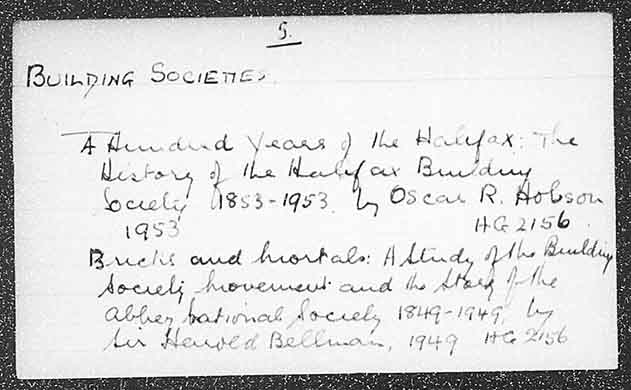 5.
BUILDING SOCIETIES.
A Hundred Years of the Halifax: The
History of the Halifax Building
Society 1853-1953. by Oscar R. Hobson
1953 HG 2156.
Bricks and Mortals: A Study of the Building
Society movement and the Story of the
Abbey National Society 1849-1949, by
Sir Harold Bellman, 1949 HG 2156